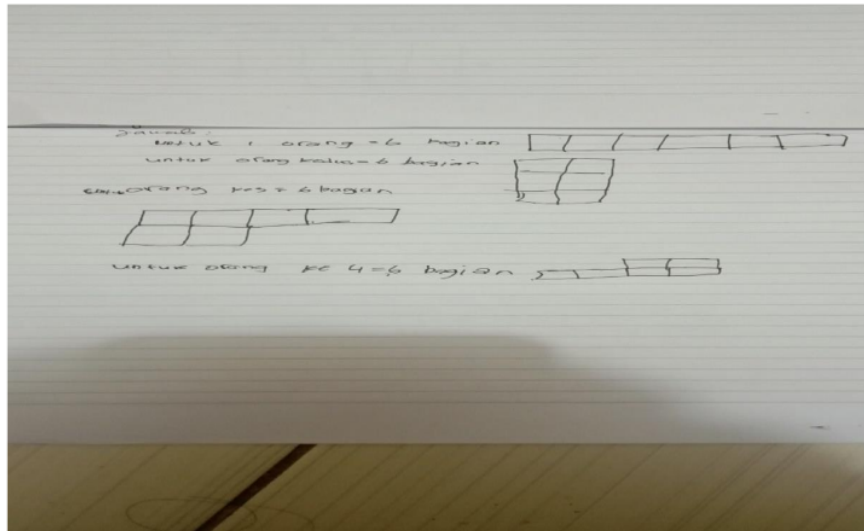 Jawab :
Untuk 1 orang = 6 bagian
untuk orang kedua = 6 bagian
orang ke 3 = 6 bagian
untuk orang ke 4 = 6 bagian